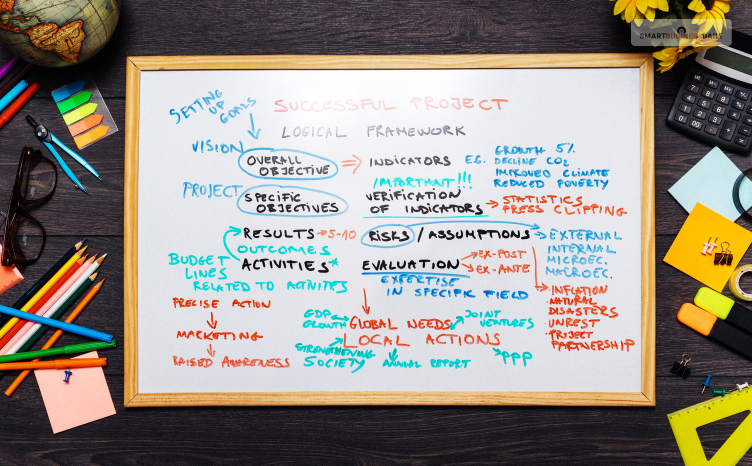 SMARTBUSINESSDAILY
SETTING
UP
GOALS
SUCCESSFUL PROJECT
LOGICAL FRAMEWORK
VISION
OVERALL
OBJECTIVE
INDICATORS E.G.
GROWTH 5%
DECLINE CO2
IMPROVED CLIMATE
REDUCED POVERTY
PROJECT
SPECIFIC
OBJECTIVES
IMPORTANT!!!
VERIFICATION
OF INDICATORS
STATISTICS
PRESS CLIPPING
RESULTS 5-10
OUTCOMES
ACTIVITIES*
BUDGET
LINES
RELATED TO ACTIVITES
RISKS / ASSUMPTIONS
EXTERNAL
INTERNAL
MICROEC.
MACROEC.
EVALUATION
EX-POST
EX-ANTE
EXPERTISE
IN SPECIFIC FIELD
INFLATION
NATURAL
DISASTERS
UNREST
PROJECT
PARTNERSHIP
PRECISE ACTION
MARKETING
RAISED AWARENESS
GDP
GROWTH
GLOBAL NEEDS
JOINT
VENTURES
LOCAL ACTIONS
STRENGTHENING
SOCIETY
ANNUAL REPORT
PPP
#